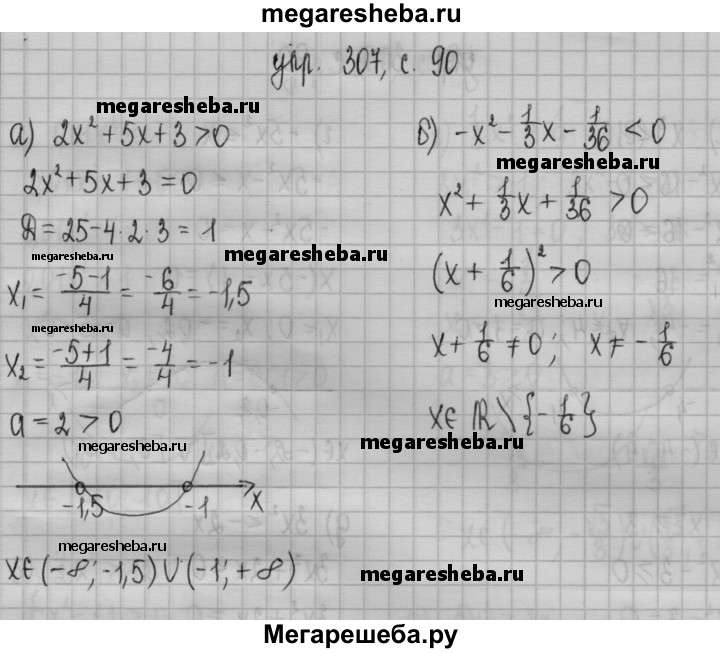 megaresheba.ru
упр. 307, с. 90
megaresheba.ru
а) 2x² + 5x + 3 > 0
2x² + 5x + 3 = 0
Д = 25 - 4 · 2 · 3 = 1
megaresheba.ru
megaresheba.ru
x₁ = (-5-1)/4 = -6/4 = -1,5
megaresheba.ru
x₂ = (-5+1)/4 = -4/4 = -1
a = 2 > 0
megaresheba.ru
-1,5 -1 x
megaresheba.ru
x∈(-∞; -1,5)∪(-1; +∞)
б) -x² - 1/3x - 1/36 < 0
megaresheba.ru
x² + 1/3x + 1/36 > 0
(x + 1/6)² > 0
megaresheba.ru
x + 1/6 ≠ 0; x ≠ -1/6
x∈ ℝ \ {-1/6}
megaresheba.ru
megaresheba.ru
Мегарешеба.ру